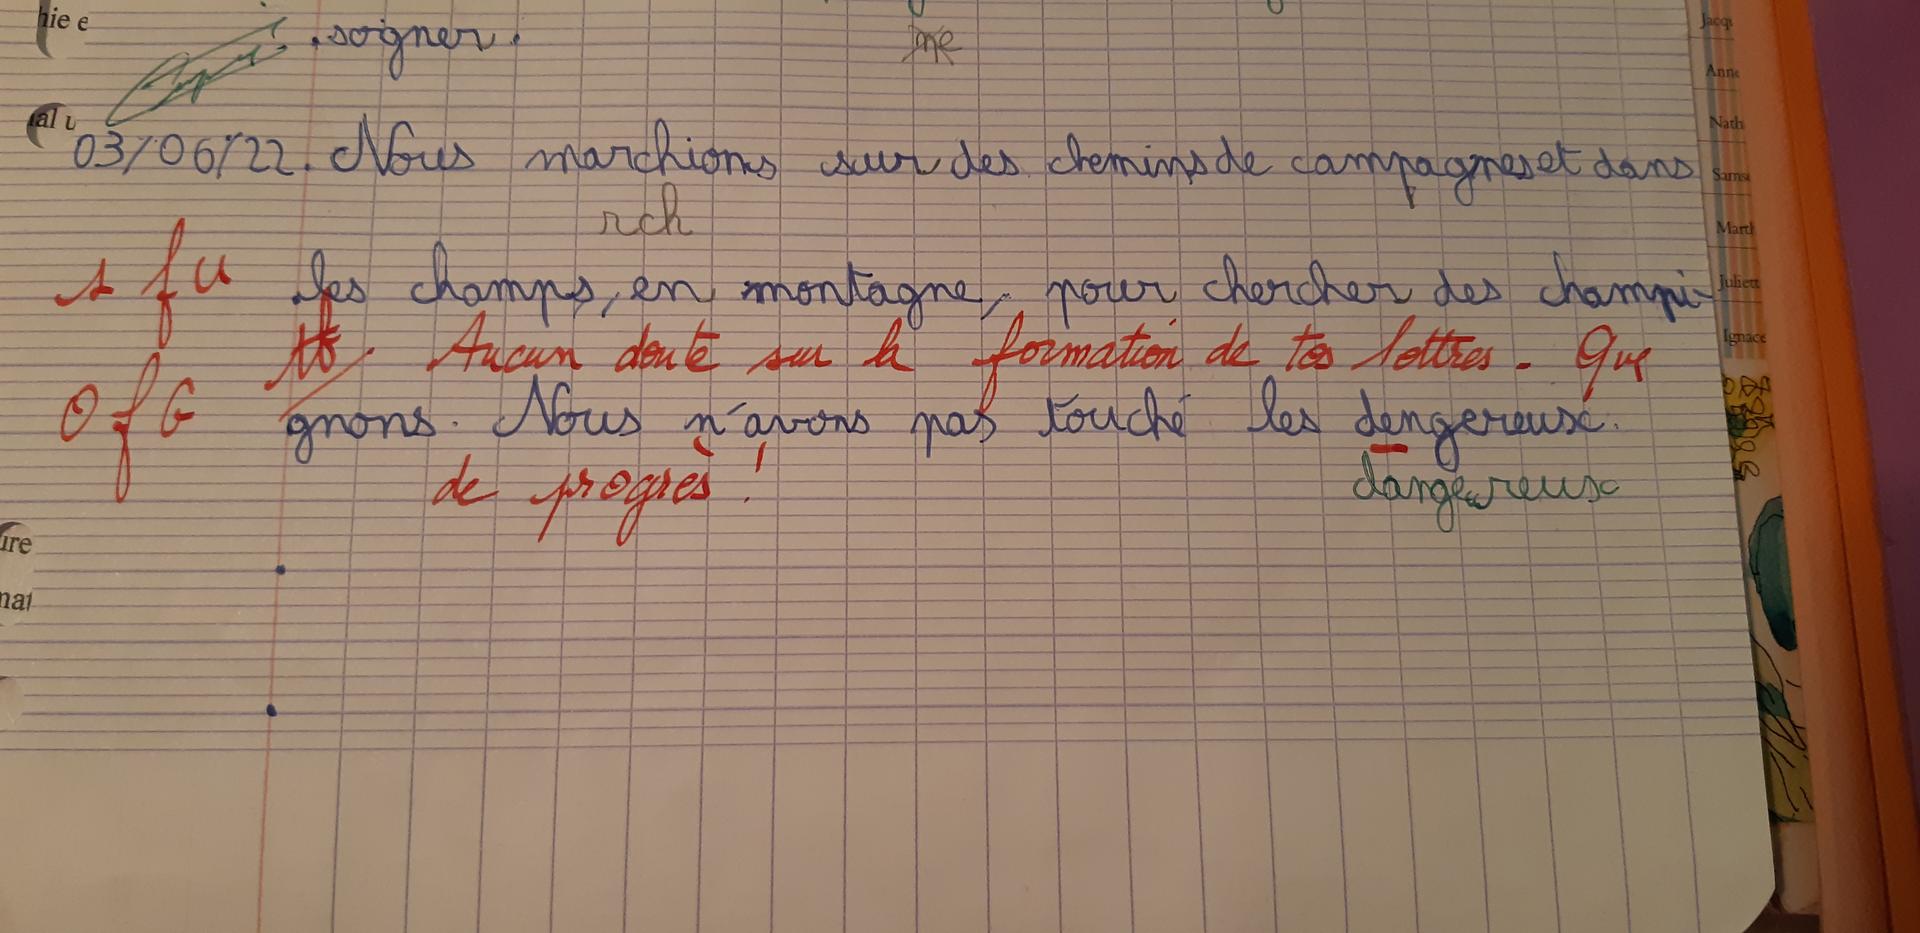 hie e
.sogner.
me
Jacqu
Anne
al u
03/06/22. Nous marchions sur des chemins de campagnes et dans
Nath
Samu
rch
Marth
s f u les champs, en montagne, pour chercher des champi-
Juliett
TB. Aucun doute sur la formation de tes lettres. Que
Ignace
o f G gnons. Nous n'avons pas touché les dengereux.
de progrès !
dangereux
ire
nat